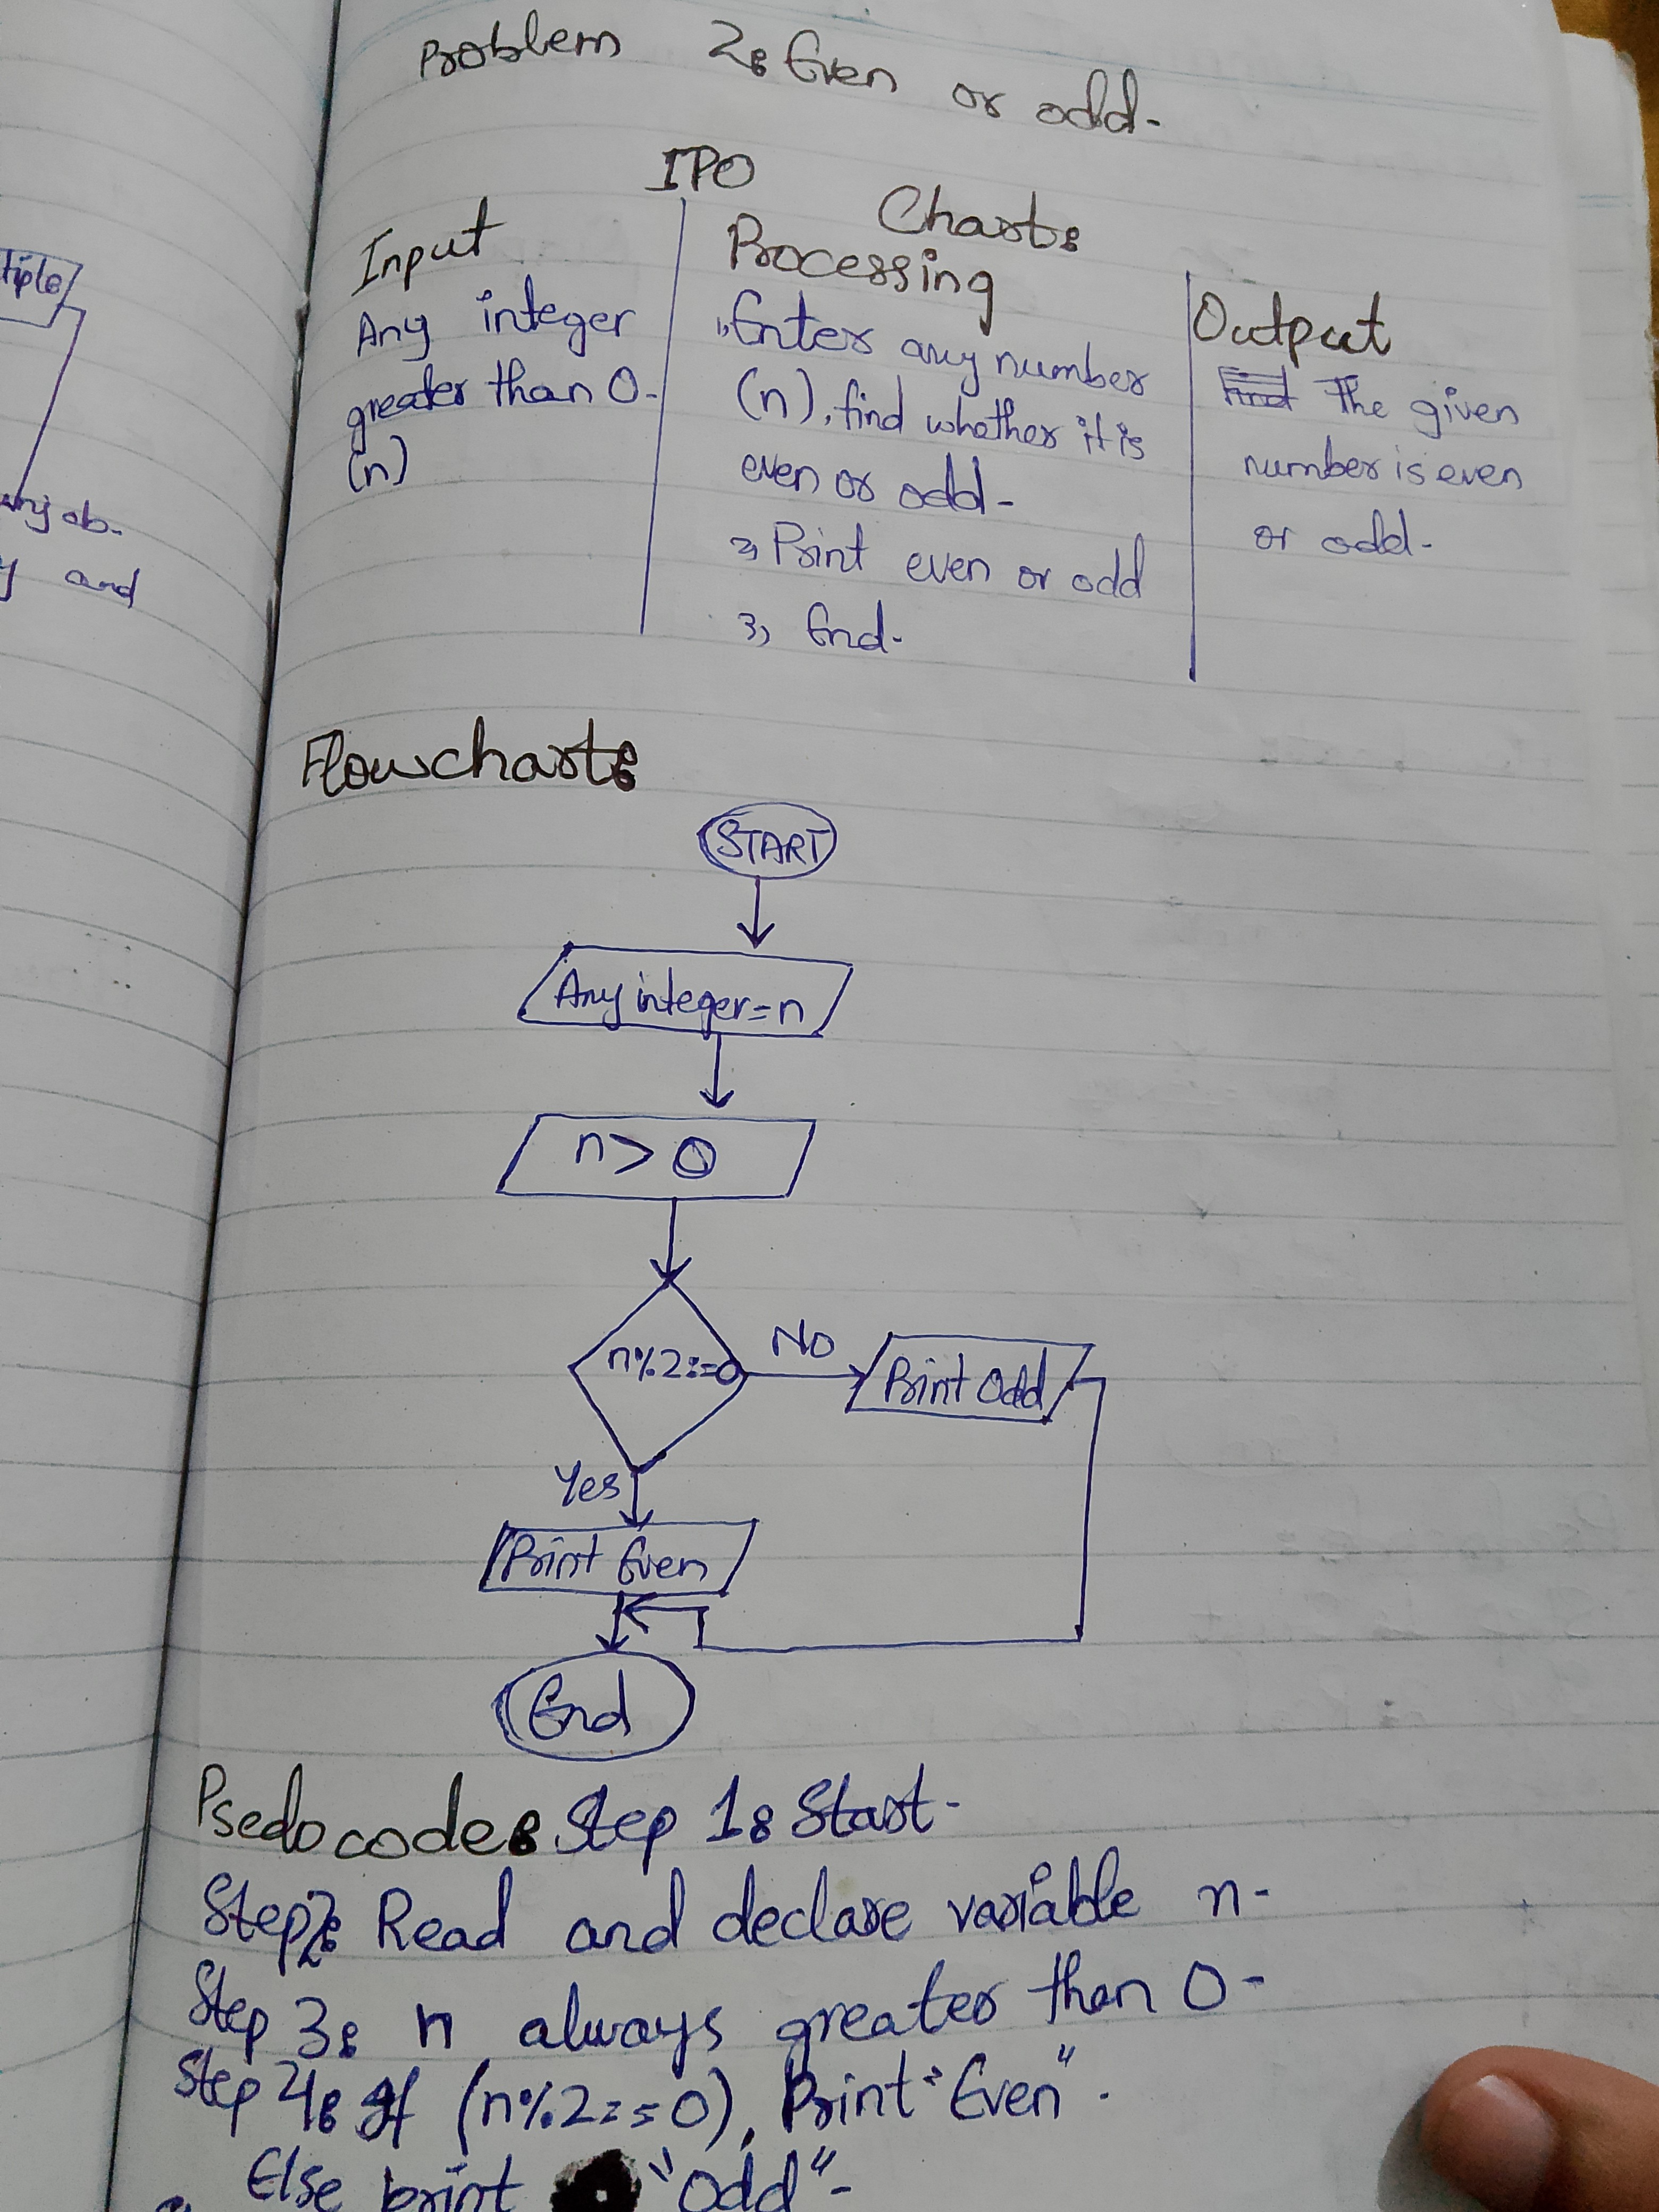 Problem 2: Even or odd.
IPO Chart:
Input
Any integer
greater than 0.
(n)
Processing
1, Enter any number
(n), find whether it is
even or odd.
2, Print even or odd
3, End.
Output
The given
number is even
or odd.
Flowchart:
START
Any integer=n
n > 0
n%2==0
No
Print Odd
Yes
Print Even
End
Psedocode: Step 1: Start.
Step2: Read and declare variable n.
Step 3: n always greater than 0.
Step 4: If (n%2==0), Print "Even".
Else print "Odd".
tiple
any ob-
y and